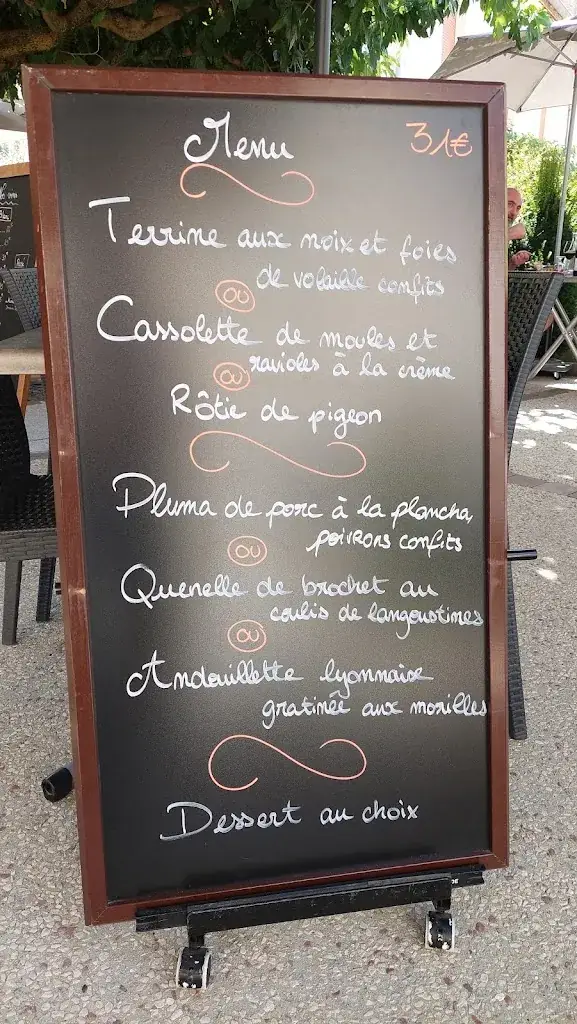 Menu
31€
Terrine aux noix et foies
de volaille confits
ou
Cassolette de moules et
ravioles à la crème
ou
Rôtie de pigeon
Pluma de porc à la plancha,
poivrons confits
ou
Quenelle de brochet au
coulis de langoustines
ou
Andouillette lyonnaise
gratinée aux morilles
Dessert au choix